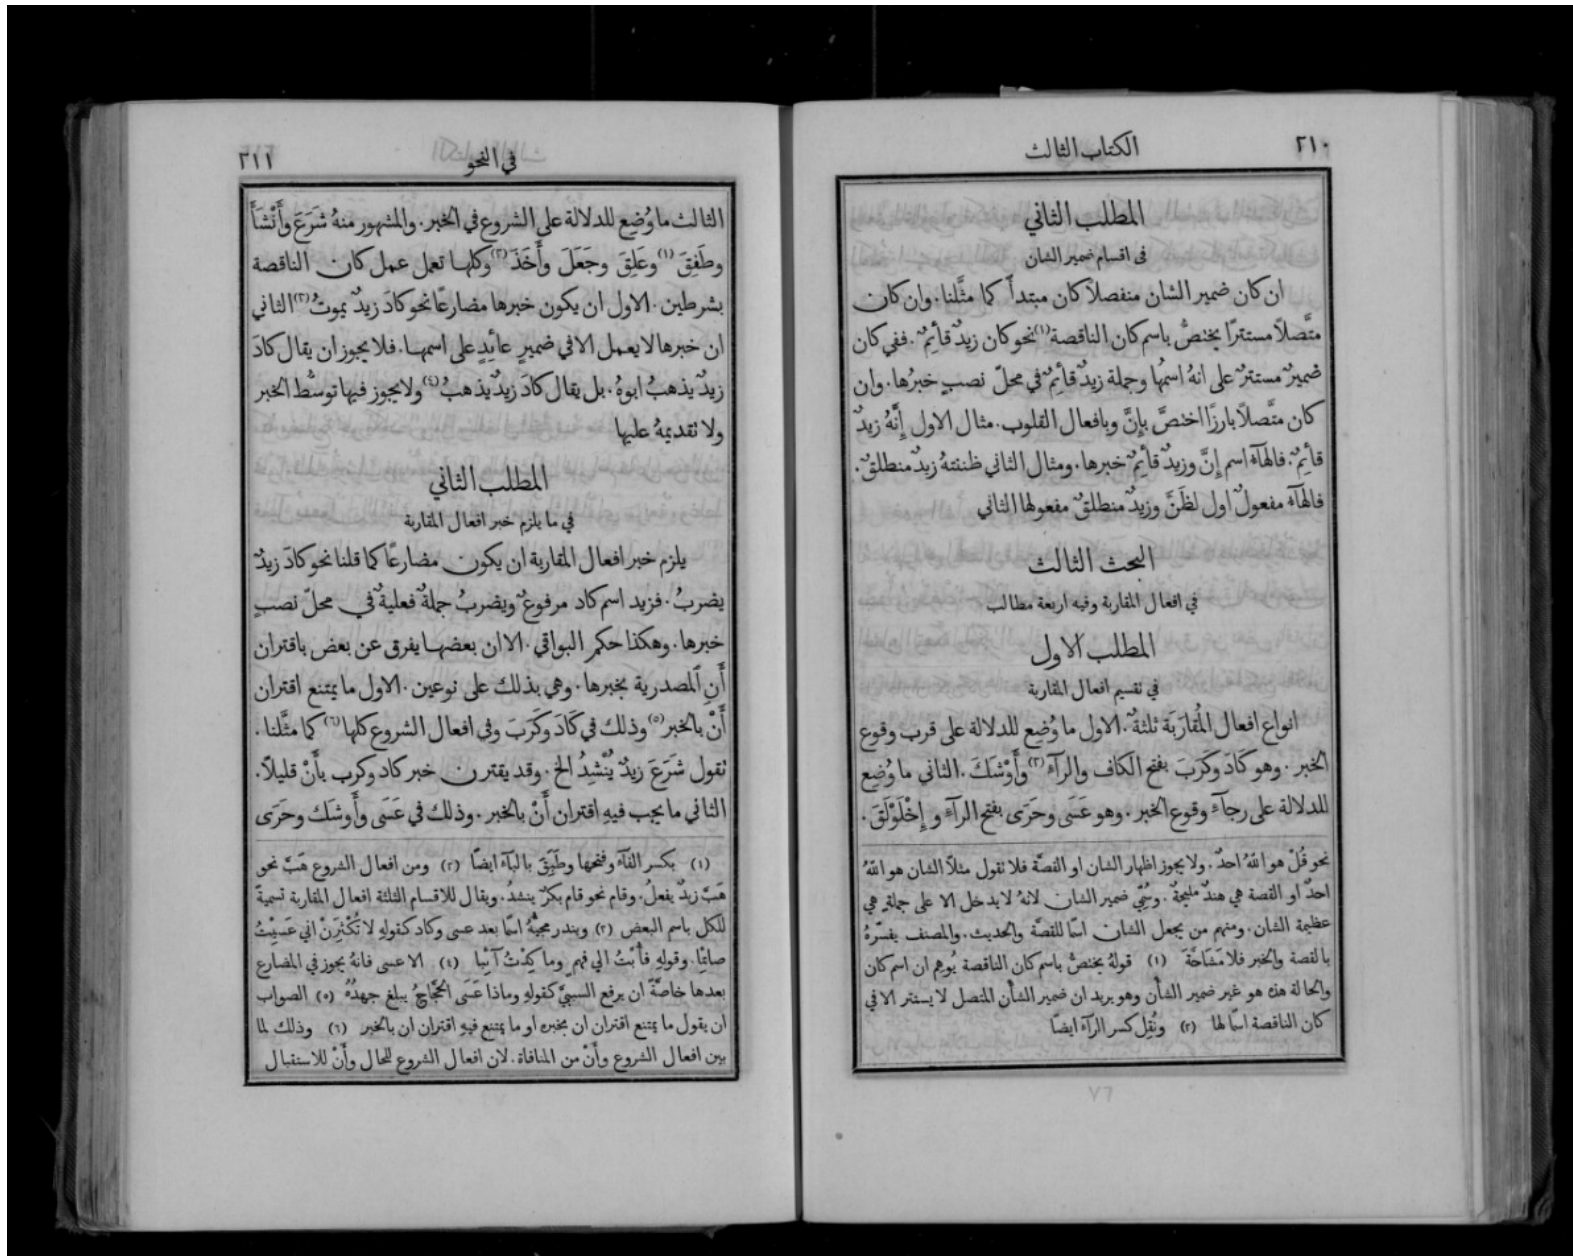 ٢١٠
الكتاب الثالث
المطلب الثاني
في اقسام ضمير الشان
ان كان ضمير الشان منفصلاً كان مبتدأً كما مثَّلنا. وان كان
متَّصلاً مستترًا يختصُّ باسم كان الناقصة (١) نحو كان زيدٌ قائِمٌ. ففي كان
ضميرٌ مستترٌ على انهُ اسمها وجملة زيدٌ قائِمٌ في محلّ نصبٍ خبرُها. وان
كان متَّصلاً بارزًا اختصَّ بإِنَّ وبافعال القلوب. مثال الاول إِنَّهُ زيدٌ
قائِمٌ. فالهآء اسم إِنَّ وزيدٌ قائِمٌ خبرها. ومثال الثاني ظننتهُ زيدٌ منطلقٌ.
فالهَآء مفعولٌ اول لظَنَّ وزيدٌ منطلقٌ مفعولها الثاني
البحث الثالث
في افعال المقاربة وفيه اربعة مطالب
المطلب الاول
في تقسيم افعال المقاربة
انواع افعال المُقارَبَة ثلثةٌ. الاول ما وُضِع للدلالة على قرب وقوع
الخبر. وهو كَادَ وكَرَبَ بفتح الكاف والرآء (٢) وأَوْشَكَ. الثاني ما وُضِع
للدلالة على رجآءِ وقوع الخبر. وهو عَسَى وحَرَى بفتح الرآءِ و إِخْلَوْلَقَ.
نحو قُلْ هو اللهُ احدٌ. ولا يجوز اظهار الشان او القصَّة فلا تقول مثلاً الشان هو اللهُ
احدٌ او القصة هي هندٌ مليحةٌ. وسُمِّيَ ضمير الشان لانهُ لا يدخل الا على جملةٍ هي
عظيمة الشان. ومنهم من يجعل الشان اسمًا للقصَّة والحديث. والمصنف يفسّرهُ
بالقصة والخبر فلا مَشَاحَّةَ (١) قولهُ يختصُّ باسم كان الناقصة يُوهِم ان اسم كان
والحالة هذه هو غير ضمير الشأن وهو يريد ان ضمير الشأن المتصل لا يستتر الا في
كان الناقصة اسمًا لها (٢) ونُقِل كسر الرآء ايضًا
في النحو
٢١١
الثالث ما وُضِع للدلالة على الشروع في الخبر. والمشهور منهُ شَرَعَ وأَنْشَأَ
وطَفِقَ (١) وعَلِقَ وجَعَلَ وأَخَذَ (٢) وكلها تعمل عمل كان الناقصة
بشرطين. الاول ان يكون خبرها مضارعًا نحو كادَ زيدٌ يموتُ (٣) الثاني
ان خبرها لا يعمل الا في ضميرٍ عائِدٍ على اسمها. فلا يجوز ان يقال كادَ
زيدٌ يذهبُ ابوهُ. بل يقال كادَ زيدٌ يذهبُ (٤) ولا يجوز فيها توسُّط الخبر
ولا تقديمهُ عليها
المطلب الثاني
في ما يلزم خبر افعال المقاربة
يلزم خبر افعال المقاربة ان يكون مضارعًا كما قلنا نحو كادَ زيدٌ
يضربُ. فزيد اسم كاد مرفوعٌ ويضربُ جملةٌ فعليةٌ في محلّ نصبٍ
خبرها. وهكذا حكم البواقي. الا ان بعضها يفرق عن بعض باقتران
أَنِ المصدرية بخبرها. وهي بذلك على نوعين. الاول ما يمتنع اقتران
أَنْ بالخبر (٥) وذلك في كَادَ وكَرَبَ وفي افعال الشروع كلها (٦) كما مثَّلنا.
تقول شَرَعَ زيدٌ يُنْشِدُ الخ. وقد يقترن خبر كاد وكرب بأَنْ قليلاً.
الثاني ما يجب فيهِ اقتران أَنْ بالخبر. وذلك في عَسَى وأَوشَك وحَرَى
(١) بكسر الفآء وفتحها وطَبِقَ بالبآء ايضًا (٢) ومن افعال الشروع هَبَّ نحو
هَبَّ زيدٌ يفعلُ. وقام نحو قام بكرٌ ينشدُ. ويقال للاقسام الثلثة افعال المقاربة تسميةً
للكل باسم البعض (٣) ويندر مجيئهُ اسمًا بعد عسى وكاد كقولهِ لا تُكْثِرَنْ اني عَسَيْتُ
صائِمًا. وقولهِ فأُبْتُ الى فهمٍ وما كِدْتُ آئِبًا (٤) الا عسى فانهُ يجوز في المضارع
بعدها خاصَّةً ان يرفع السببيَّ كقولهِ وماذا عَسَى الحَجَّاجُ يبلغ جهدُهُ (٥) الصواب
ان يقول ما يمتنع اقتران ان بخبره او ما يمتنع فيهِ اقتران ان بالخبر (٦) وذلك لما
بين افعال الشروع وأَنْ من المنافاة. لان افعال الشروع للحال وأَنْ للاستقبال
٧٦